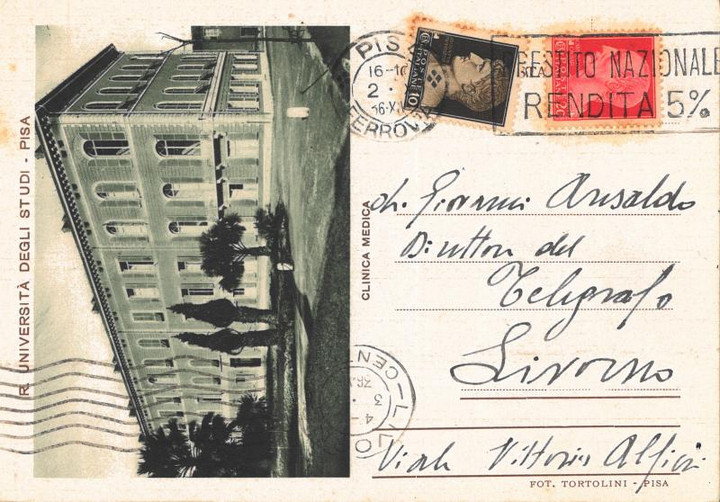 R. UNIVERSITÀ DEGLI STUDI - PISA
CLINICA MEDICA
PISA
16-1
2 ·
36-XV
FERROV
POSTE
ITALIANE 10
PRESTITO NAZIONALE
RENDITA 5%
Giovanni Ansaldo
Direttore del
Telegrafo
Livorno
Viale Vittorio Alfieri
CEN
3
4-
FOT. TORTOLINI - PISA